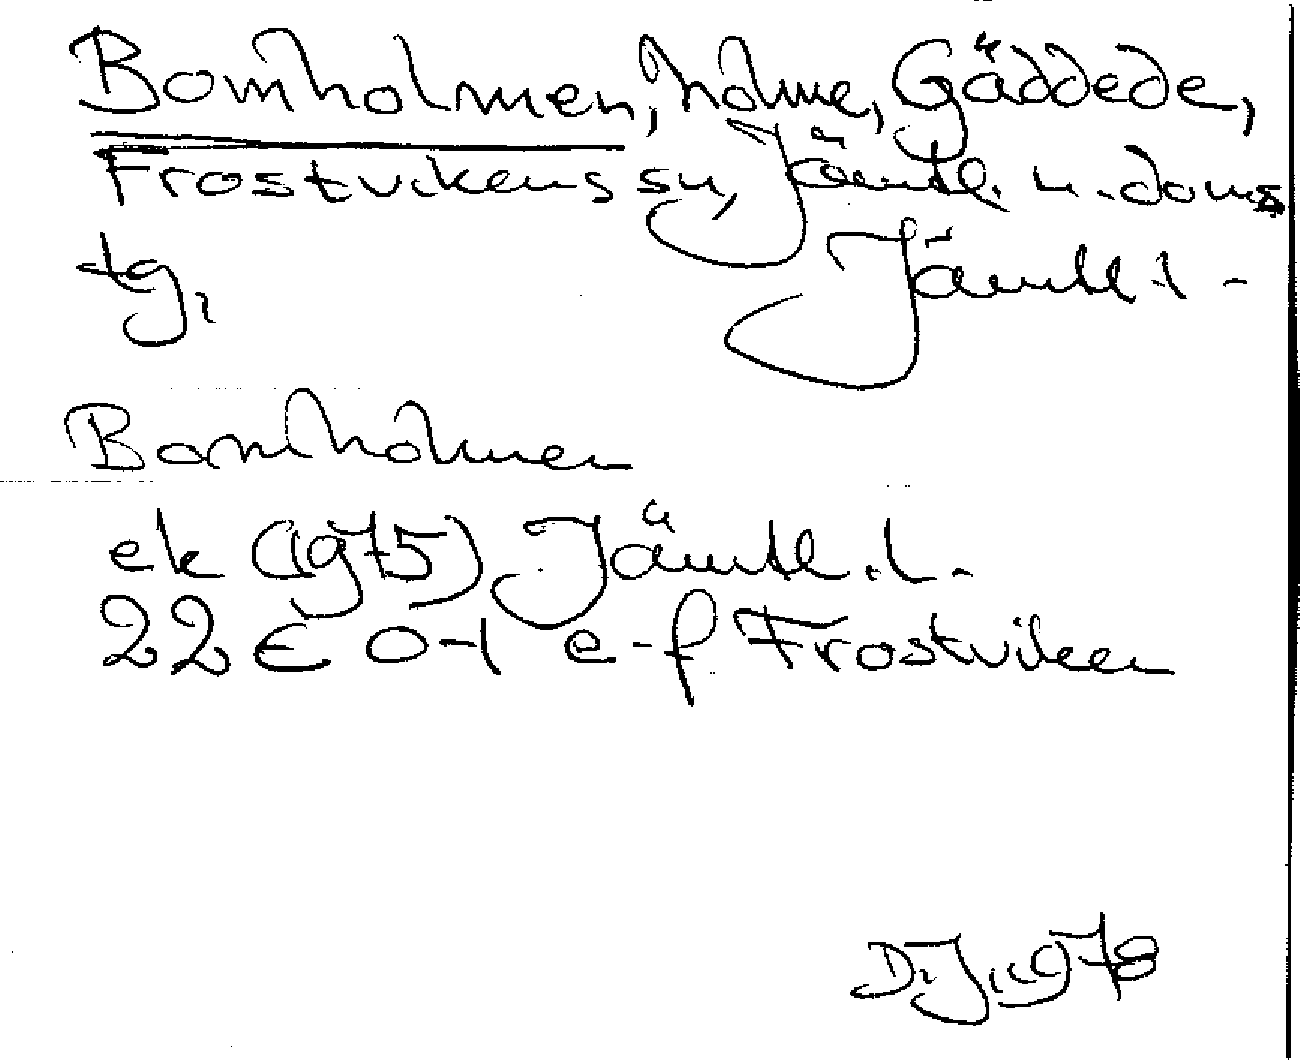 Bomholmen, holme, Gäddede,
Frostvikens sn, Jämtl. n. doms
tg,
Jämtl. l.
Bomholmen
ek (1975) Jämtl. l.
22 E 0-1 e-f Frostviken
D. J. 1978